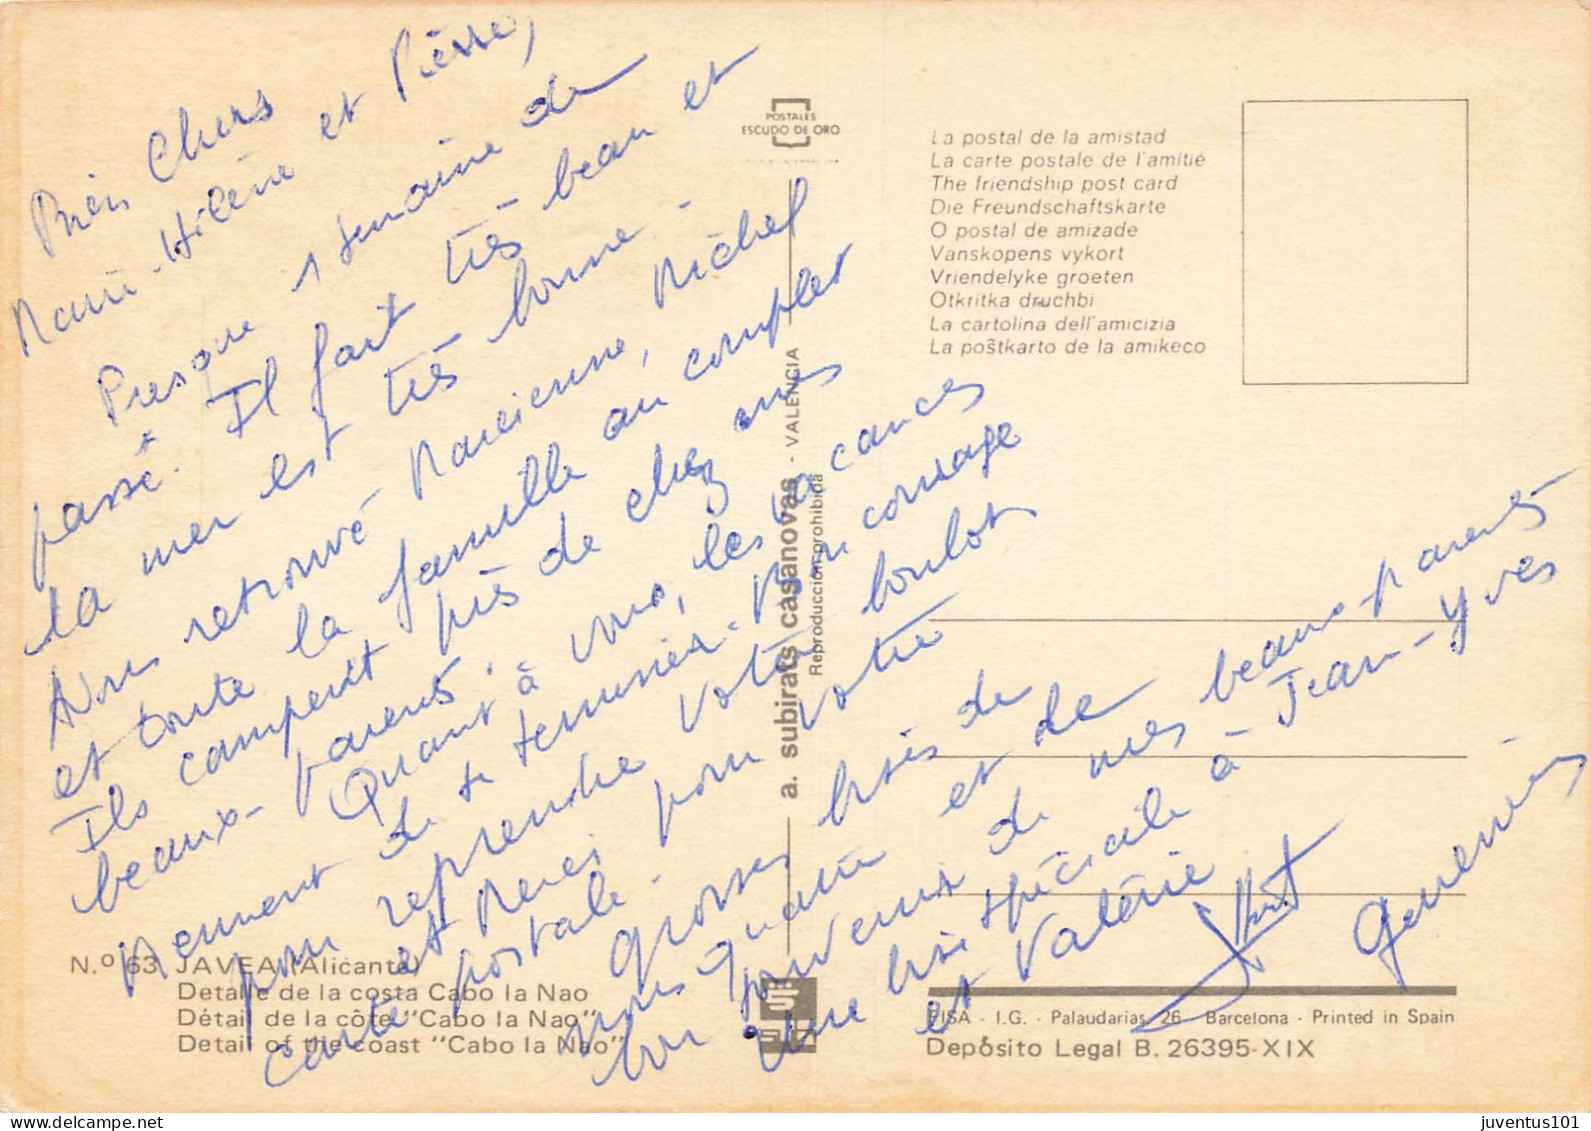 Bien Chers
Marie-Hélène et Pierre,
Presque 1 semaine de
passé. Il fait très beau et
la mer est très bonne.
Avons retrouvé Marcienne, Michel
et toute la famille au complet
Ils campent près de chez mes
beaux-parents.
Quant à vous, les vacances
viennent de se terminer. Bon courage
pour reprendre votre boulot
et Merci pour votre
carte postale.
Grosses bises de
nous quatre et de
bon souvenir de mes beaux-parents
Une bise spéciale à Jean-Yves
et Valérie
Geneviève
POSTALES
ESCUDO DE ORO
La postal de la amistad
La carte postale de l'amitié
The friendship post card
Die Freundschaftskarte
O postal de amizade
Vanskopens vykort
Vriendelyke groeten
Otkritka druchbi
La cartolina dell'amicizia
La poŝtkarto de la amikeco
a. subirats casanovas - VALENCIA
Reproducción prohibida
N.º 63 JAVEA (Alicante)
Detalle de la costa Cabo la Nao
Détail de la côte "Cabo la Nao"
Detail of the coast "Cabo la Nao"
FISA - I.G. - Palaudarias, 26 - Barcelona - Printed in Spain
Depósito Legal B. 26395-XIX
juventus101